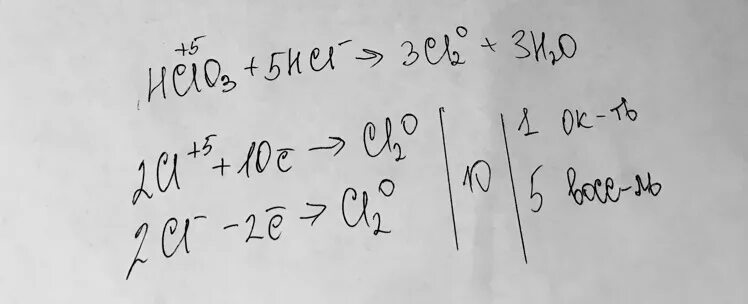 HClO₃⁺⁵ + 5HCl⁻ → 3Cl₂⁰ + 3H₂O
2Cl⁺⁵ + 10ē → Cl₂⁰ | 10 | 1 ок-ть
2Cl⁻ - 2ē → Cl₂⁰ | 5 восс-ль